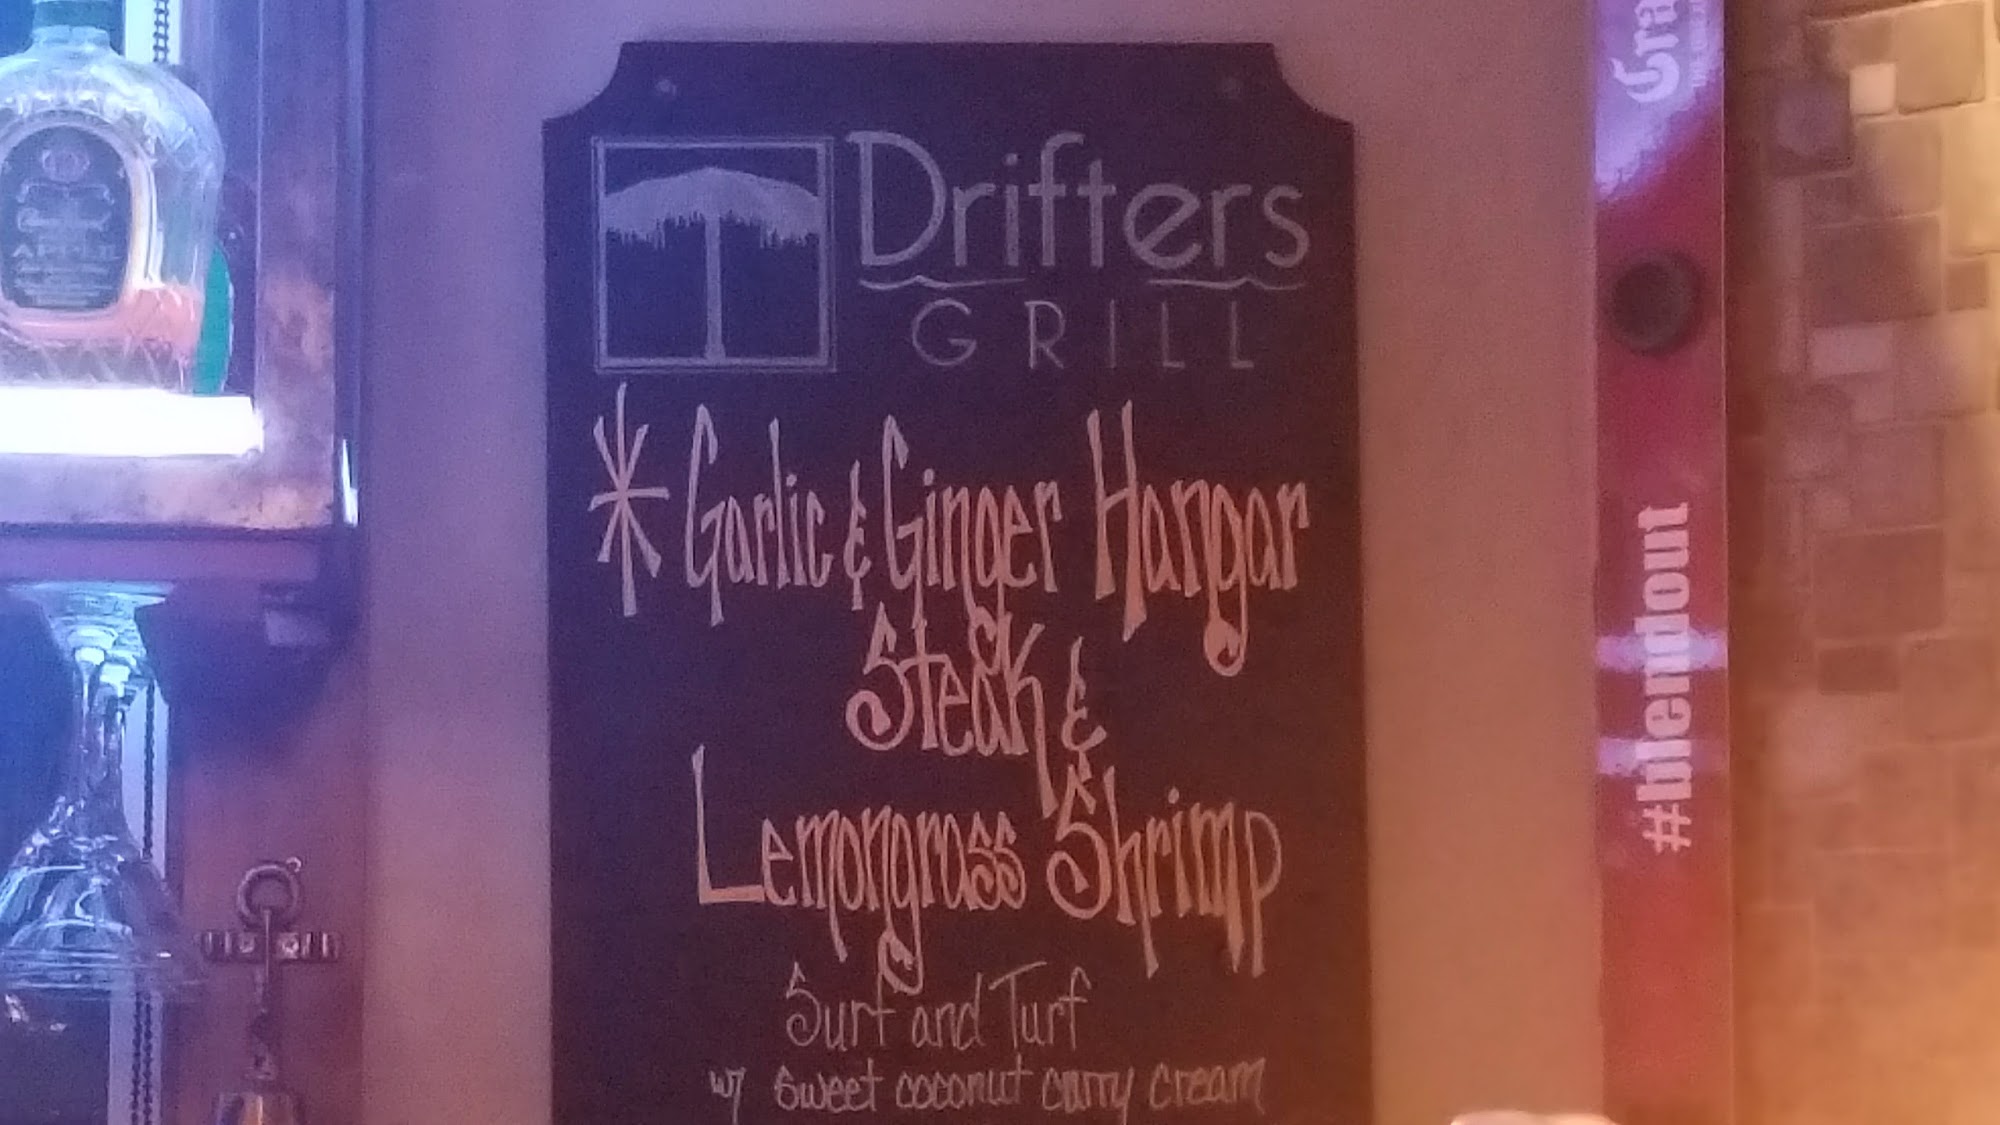 Drifters
GRILL
* Garlic & Ginger Hangar
Steak &
Lemongrass Shrimp
Surf and Turf
w/ sweet coconut curry cream
#blendout
Gra
APPLE